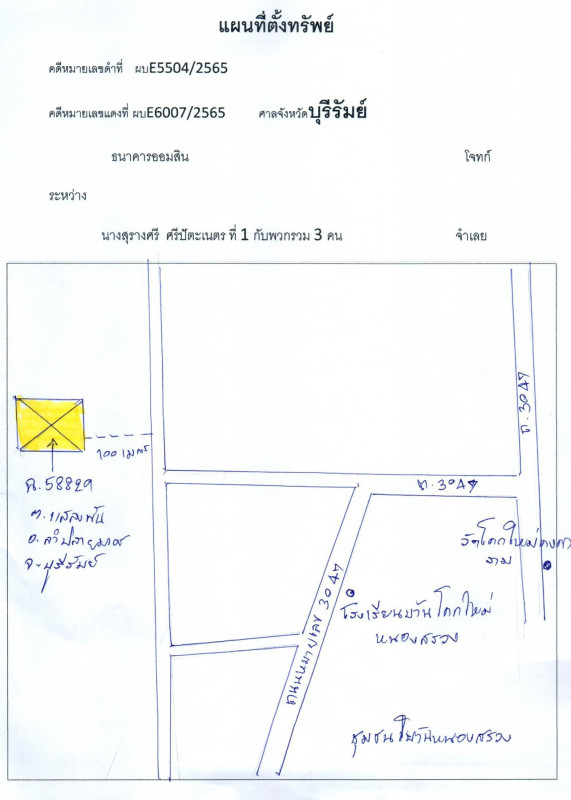 แผนที่ตั้งทรัพย์
คดีหมายเลขดำที่ ผบE5504/2565
คดีหมายเลขแดงที่ ผบE6007/2565 ศาลจังหวัดบุรีรัมย์
ธนาคารออมสิน โจทก์
ระหว่าง
นางสุรางศรี ศรีปัตะเนตร ที่ 1 กับพวกรวม 3 คน จำเลย
ถ.3047
100 เมตร
ฉ.58829
ต.แสลงพัน
อ.ลำปลายมาศ
จ.บุรีรัมย์
ถ.3047
วัดโคกใหม่
ราม
ถนนหมายเลข 3047
โรงเรียนบ้านโคกใหม่
หนองสรวง
ชุมชนบ้านหนองสรวง